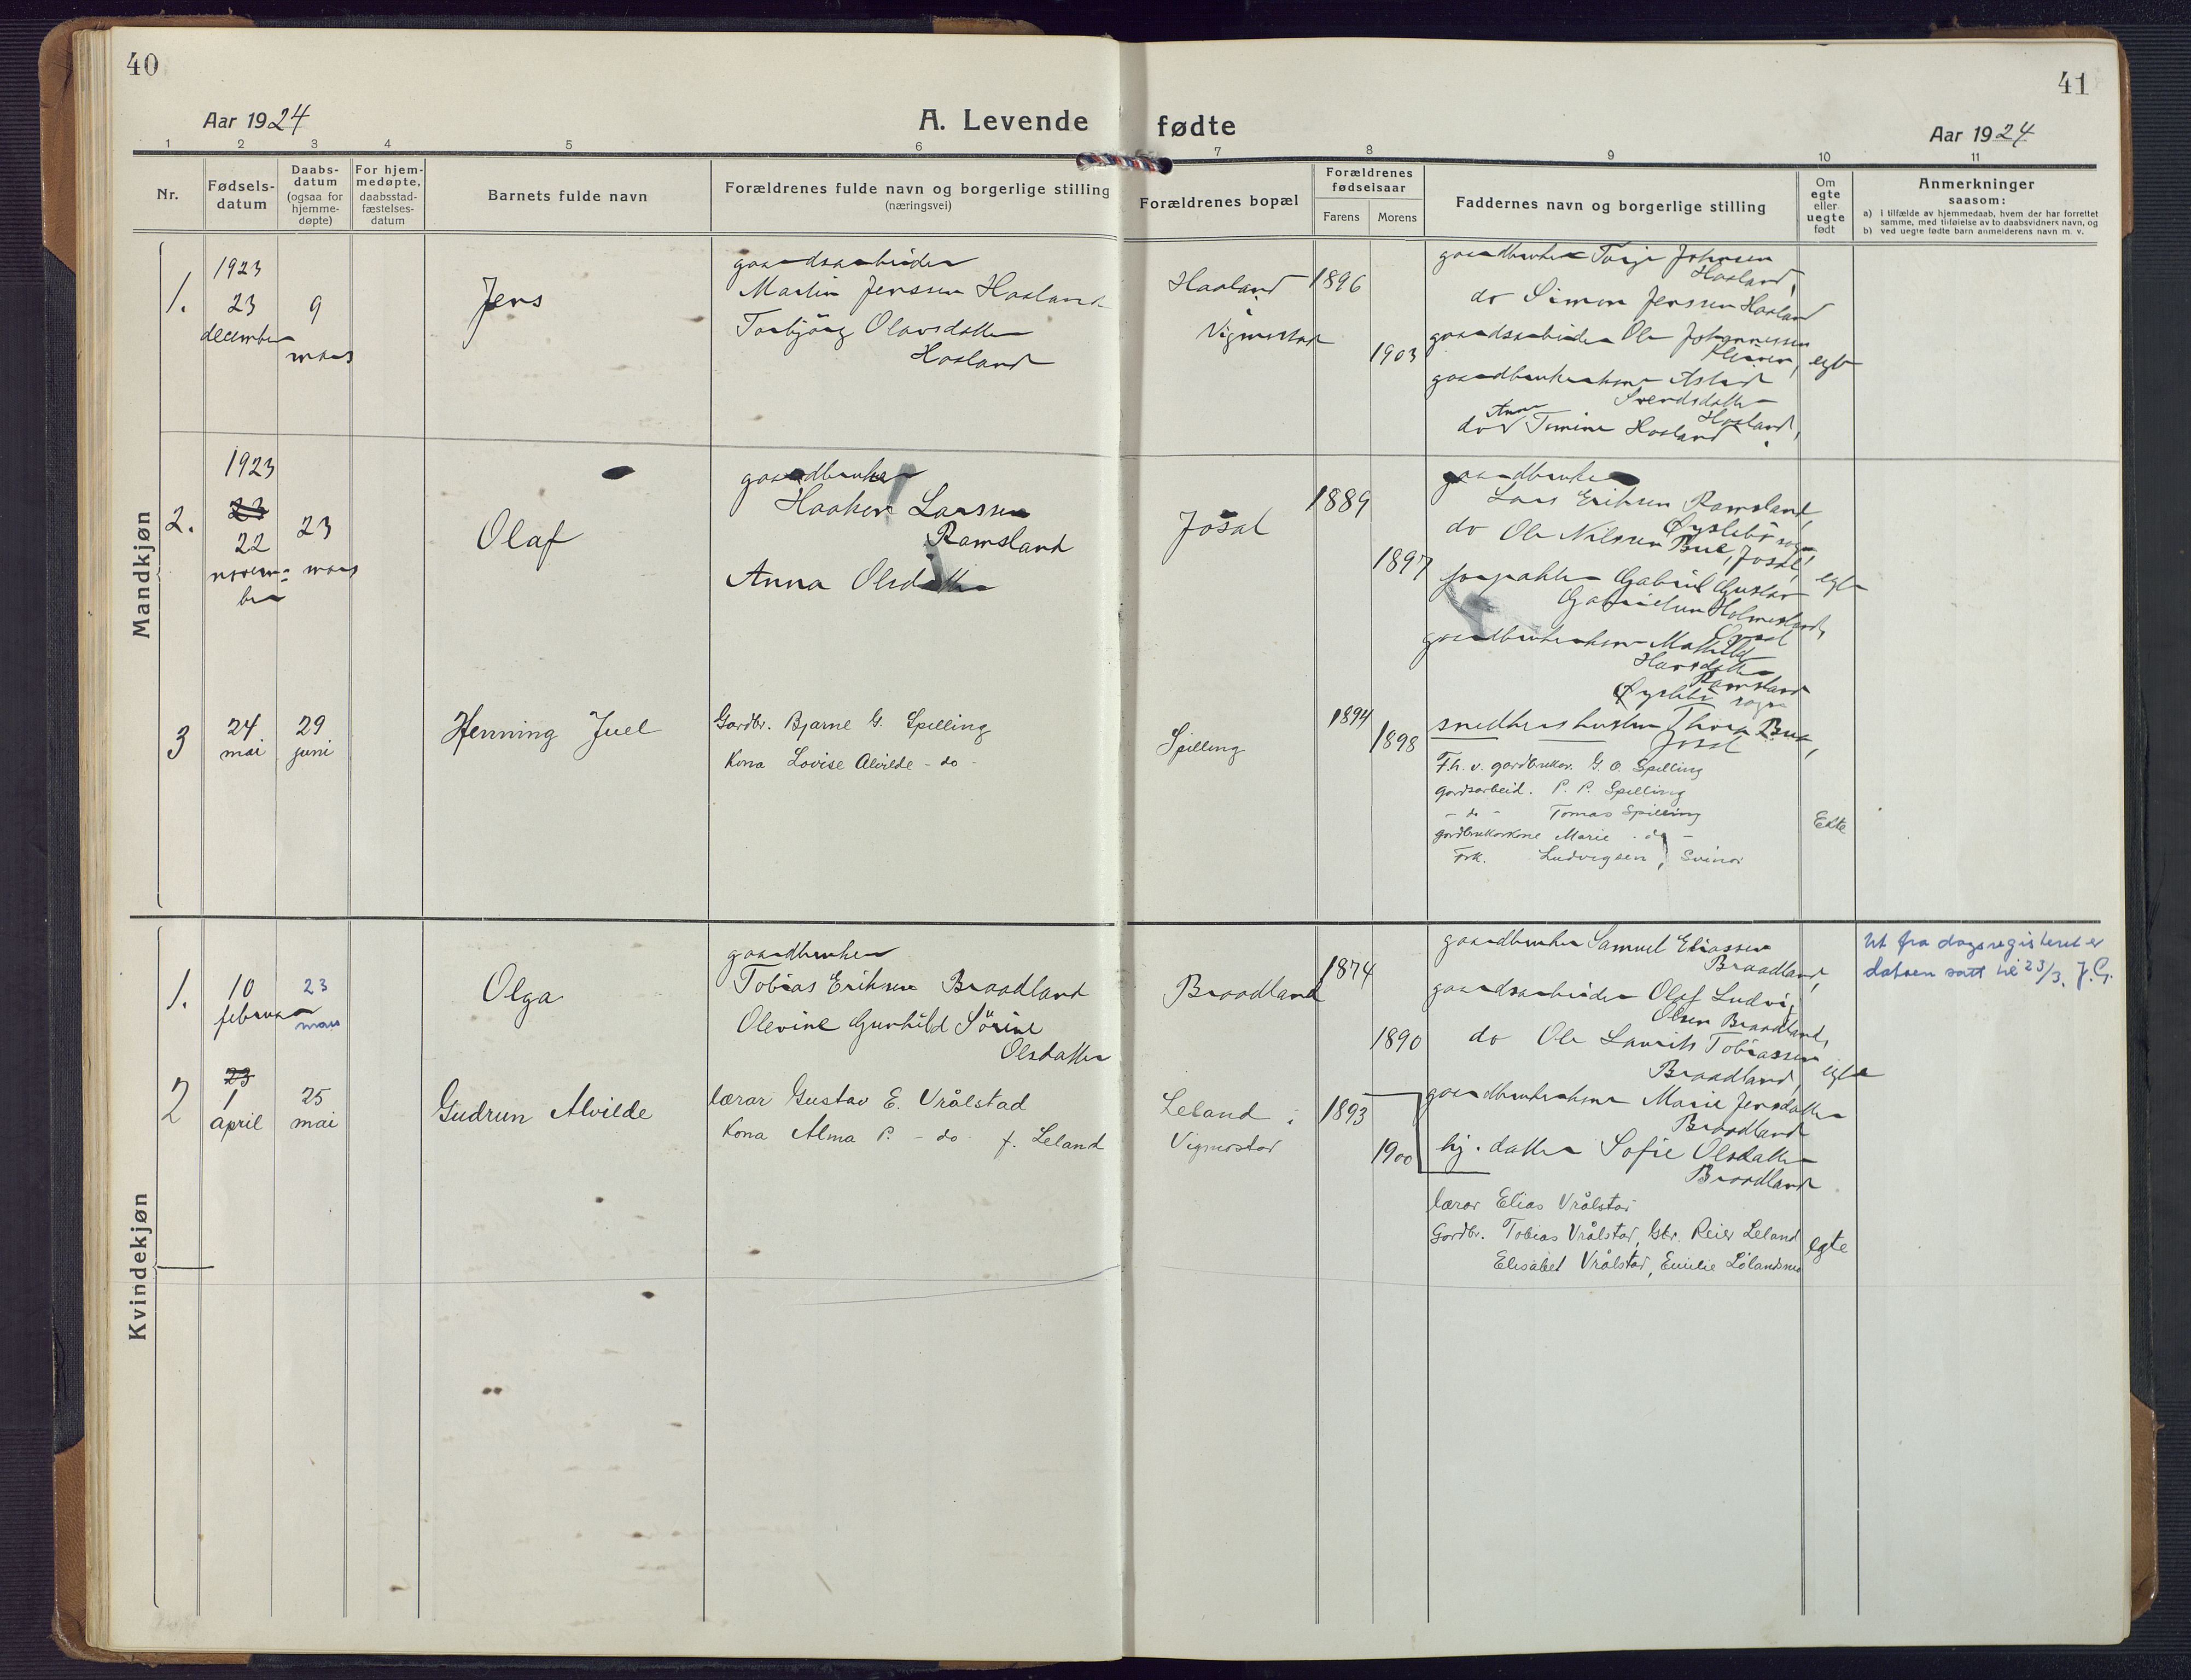 40
41
Aar 1924
A. Levende fødte
Aar 1924
1 2 3 4 5 6 7 8 9 10 11
Nr.
Fødsels-
datum
Daabs-
datum
(ogsaa for
hjemme-
døpte)
For hjem-
medøpte,
daabsstad-
fæstelses-
datum
Barnets fulde navn
Forældrenes fulde navn og borgerlige stilling
(næringsvei)
Forældrenes bopæl
Forældrenes
fødselsaar
Farens Morens
Faddernes navn og borgerlige stilling
Om
egte
eller
uegte
født
Anmerkninger
saasom:
a) I tilfælde av hjemmedaab, hvem der har forrettet
samme, med tilføielse av to daabsvidners navn, og
b) ved uegte fødte barn anmelderens navn m. v.
Mandkjøn
1.
1923
23
december
9
mars
Jens
gaardsarbeider
Martin Jenssen Haaland
Torbjörg Olavsdatter
Haaland
Haaland
i
Vigmostad
1896
1903
gaardbruker Terje Johnsen
Haaland,
do Simon Jenssen Haaland
gaardsarbeider Ole Johannessen
gaardbrukerkone Astrid
Svendsdatter
Haaland,
do Anna Tomine Haaland.
egte
2.
1923
23
22
novem-
ber
23
mars
Olaf
gaardbruker
Haakon Larssen
Ramsland
Anna Olsdatter
Josal
1889
1897
gaardbruker
Lars Eriksen Ramsland,
Øyslebö sogn
do Ole Nilssen Bue, Josal,
forpakter Gabriel Gustav
Gabrielsen Holmesland,
gaardbrukerkone Mathilde
Hansdatter
Ramsland
Øyslebö sogn
snedkershustru Thora Bue,
Josal
egte
3
24
mai
29
juni
Henning Juel
Gardbr. Bjarne G. Spilling
Kona Lovise Alvilde - do -
Spilling
1894
1898
Fh. v. gardbrukar. G. O. Spilling
gardsarbeid. P. P. Spilling
- do - Tomas Spilling
gardbrukarkone Marie - do -
Frk. Ludvigsen, Svinör
Ekte
Kvindekjøn
1.
10
februar
23
mars
Olga
gaardbruker
Tobias Eriksen Braadland
Olevine Gunhild Sörine
Olsdatter
Braadland
1874
1890
gaardbruker Samuel Eliassen
Braadland,
gaardsarbeider Olaf Ludvig
Olsen Braadland,
do Ole Laurits Tobiassen
Braadland,
gaardbrukerkone Marie Jensdatter
Braadland
hj. datter Sofie Olsdatter
Braadland
egte
Ut fra dagsregisteret er
datoen satt til 23/3. J.G.
2
23
1
april
25
mai
Gudrun Alvilde
lærar Gustav E. Vrålstad
Kona Alma P. - do - f. Leland
Leland i
Vigmostad
1893
1900
lærar Elias Vrålstad
Gardbr. Tobias Vrålstad, Gbr. Reier Leland
Elisabet Vrålstad, Emilie Lølandsmo
egte